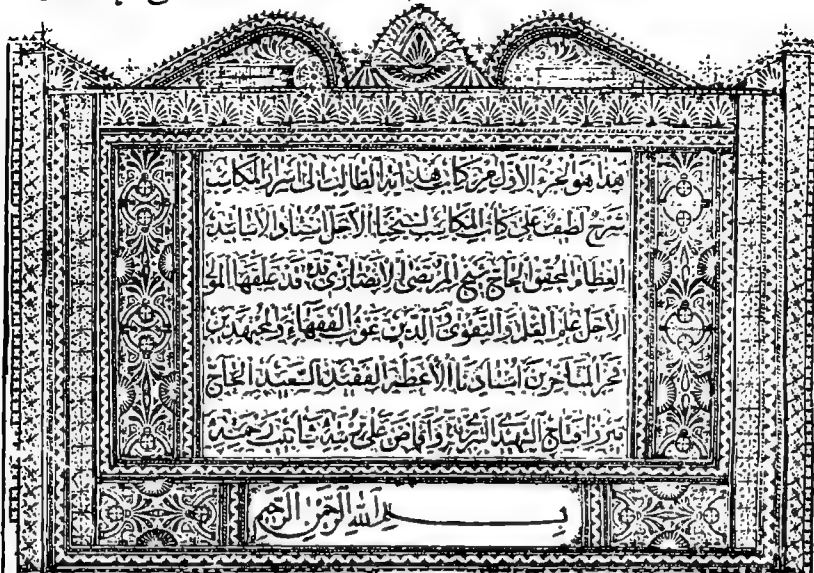 هذا هو الجزء الاول من كتاب هداية الطالب الى اسرار المكاسب
شرح لطيف على كتاب المكاسب لشيخنا الاجل استاد الاساتيد
العظام المحقق الحاج شيخ المرتضى الانصاري قده قد علقها المولى
الاجل علم العلم والتقوى والدين غوث الفقهاء والمجتهدين
فخر المتاخرين استادنا الاعظم الفقيد السعيد الحاج
ميرزا فتاح الشهيدي التبريزي وافاض على تربته شابيب رحمته
بسم الله الرحمن الرحيم